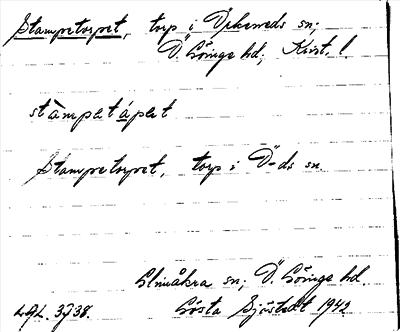 Stampetorpet, torp i Örkeneds sn;
Ö. Göinge hd; Krist. l.
stàmpetåpet
Stampetorpet, torp i Ö-ds sn.
Glimåkra sn, Ö. Göinge hd.
Gösta Sjöstedt 1942